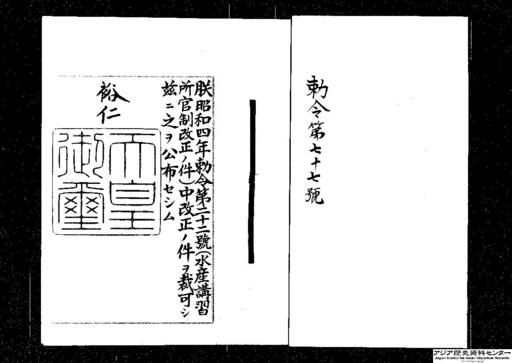 勅令第七十七號
朕昭和四年勅令第二十二號(水産講習
所官制改正ノ件)中改正ノ件ヲ裁可シ
玆ニ之ヲ公布セシム
裕仁
天皇
御璽
アジア歴史資料センター
Japan Center for Asian Historical Records